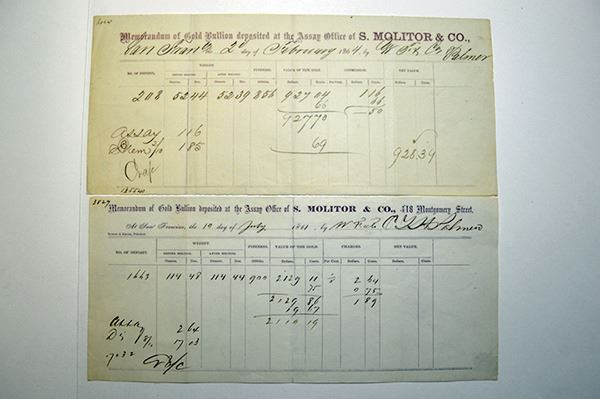 Memorandum of Gold Bullion deposited at the Assay Office of S. MOLITOR & CO.,
San Fran the 2d day of February 1864, by W. T. & Co Palmer
WEIGHT.
NO. OF DEPOSIT. BEFORE MELTING. AFTER MELTING. FINENESS. VALUE OF THE GOLD. COMMISSION. NET VALUE.
Ounces. Dec. Ounces. Dec. Dollars. Cents. Per Cent. Dollars. Cents. Dollars. Cents.
208 52 44 52 39 856 927 04 1 16
66 66
927 70 50
Assay 1 16 69
Prem 2/10 1 85 928.39
3827
Memorandum of Gold Bullion deposited at the Assay Office of S. MOLITOR & CO., 418 Montgomery Street.
At San Francisco, the 10 day of July 1861, by W. T. & C Palmer
WEIGHT.
NO. OF DEPOSIT. BEFORE MELTING. AFTER MELTING. FINENESS. VALUE OF THE GOLD. CHARGES. NET VALUE.
Ounces. Dec. Ounces. Dec. Dollars. Cents. Per Cent. Dollars. Cents. Dollars. Cents.
1663 114 48 114 44 900 2129 11 1/8 2 64
75 0 75
2129 86 1 89
19 67
2110 19
Assay 2 64
Dis 17 03